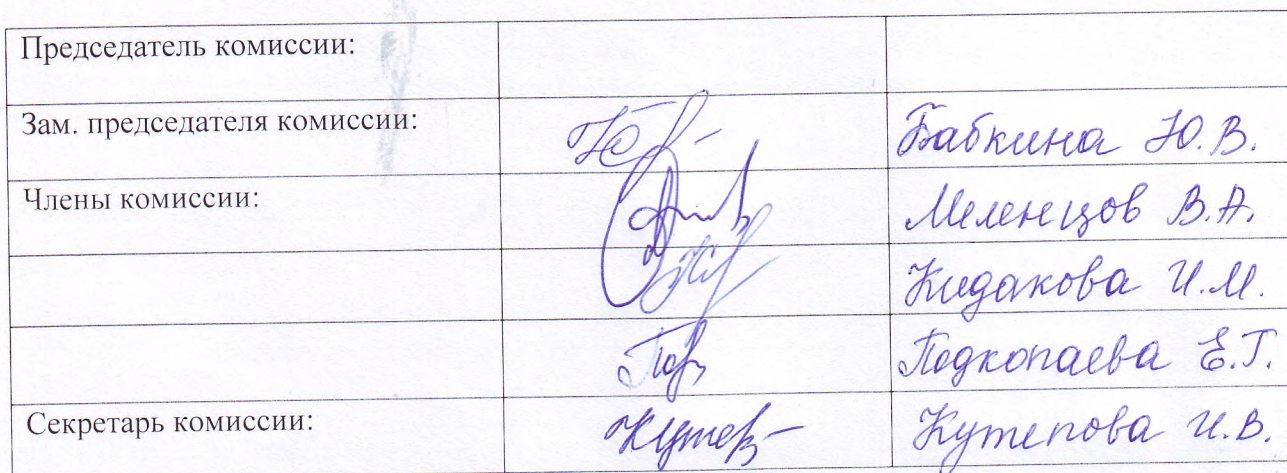 Председатель комиссии:
Зам. председателя комиссии: Бабкина Ю.В.
Члены комиссии: Меленцов В.А.
Кидакова И.М.
Подкопаева Е.Г.
Секретарь комиссии: Кутепова И.В.